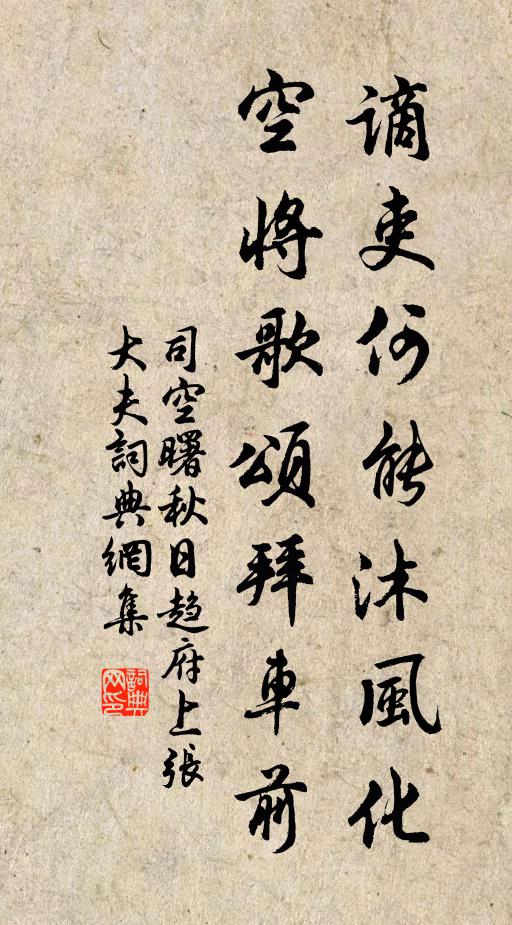 謫吏何能沐風化
空將歌頌拜車前
司空曙秋日趨府上張
大夫詞典網集
詞典网印